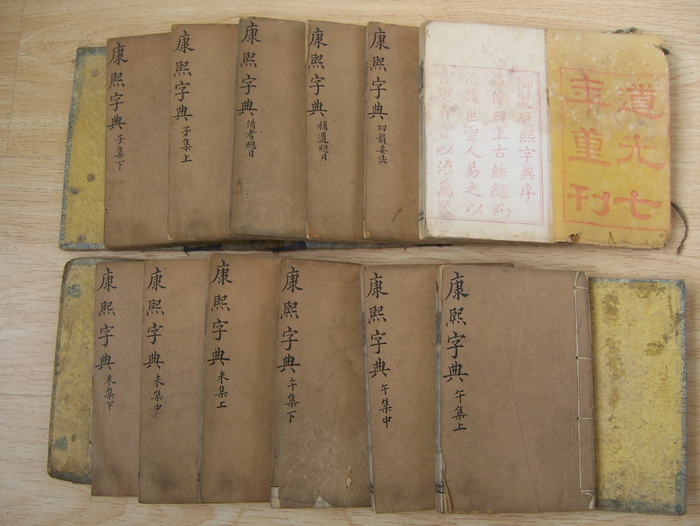 道光七
年重刊
御製康熙字典序
易傳曰上古結繩而
治後世聖人易之以
書契百官以治萬民
康熙字典 切韻要法
康熙字典 補遺總目
康熙字典 備考總目
康熙字典 子集上
康熙字典 子集下
康熙字典 午集上
康熙字典 午集中
康熙字典 午集下
康熙字典 未集上
康熙字典 未集中
康熙字典 未集下